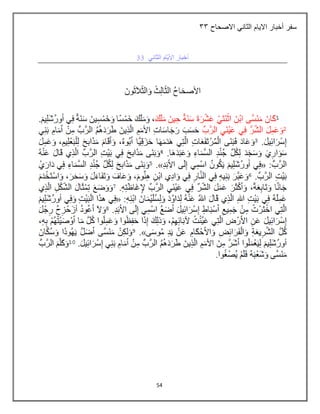 سفر أخبار الايام الثاني الاصحاح ٣٣
أخبار الأيام الثاني 33
الأصحَاحُ الثَّالِثُ وَالثَّلاَثُونَ
¹كَانَ مَنَسَّى ابْنَ اثْنَتَيْ عَشَرَةَ سَنَةً حِينَ مَلَكَ، وَمَلَكَ خَمْسًا وَخَمْسِينَ سَنَةً فِي أُورُشَلِيمَ.
²وَعَمِلَ الشَّرَّ فِي عَيْنَيِ الرَّبِّ حَسَبَ رَجَاسَاتِ الأُمَمِ الَّذِينَ طَرَدَهُمُ الرَّبُّ مِنْ أَمَامِ بَنِي
إِسْرَائِيلَ. ³وَعَادَ فَبَنَى الْمُرْتَفَعَاتِ الَّتِي هَدَمَهَا حِزَقِيَّا أَبُوهُ، وَأَقَامَ مَذَابحَ لِلْبَعْلِيمِ، وَعَمِلَ
سَوَارِيَ وَسَجَدَ لِكُلِّ جُنْدِ السَّمَاءِ وَعَبَدَهَا. ⁴وَبَنَى مَذَابحَ فِي بَيْتِ الرَّبِّ الَّذِي قَالَ عَنْهُ
الرَّبُّ: «فِي أُورُشَلِيمَ يَكُونُ اسْمِي إِلَى الأَبَدِ». ⁵وَبَنَى مَذَابحَ لِكُلِّ جُنْدِ السَّمَاءِ فِي دَارَيْ
بَيْتِ الرَّبِّ. ⁶وَعَبَّرَ بَنِيهِ فِي النَّارِ فِي وَادِي ابْنِ هِنُّومَ، وَعَافَ وَتَفَاءَلَ وَسَحَرَ، وَاسْتَخْدَمَ
جَانًّا وَتَابِعَةً، وَأَكْثَرَ عَمَلَ الشَّرِّ فِي عَيْنَيِ الرَّبِّ لإِغَاظَتِهِ. ⁷وَوَضَعَ تِمْثَالَ الشَّكْلِ الَّذِي
عَمِلَهُ فِي بَيْتِ اللهِ الَّذِي قَالَ اللهُ عَنْهُ لِدَاوُدَ وَلِسُلَيْمَانَ ابْنِهِ: «فِي هذَا الْبَيْتِ وَفِي أُورُشَلِيمَ
الَّتِي اخْتَرْتُ مِنْ جَمِيعِ أَسْبَاطِ إِسْرَائِيلَ أَضَعُ اسْمِي إِلَى الأَبَدِ. ⁸وَلاَ أَعُودُ أُزَحْزِحُ رِجْلَ
إِسْرَائِيلَ عَنِ الأَرْضِ الَّتِي عَيَّنْتُ لآبَائِهِمْ، وَذلِكَ إِذَا حَفِظُوا وَعَمِلُوا كُلَّ مَا أَوْصَيْتُهُمْ بِهِ،
كُلَّ الشَّرِيعَةِ وَالْفَرَائِضِ وَالأَحْكَامِ عَنْ يَدِ مُوسَى». ⁹وَلكِنْ مَنَسَّى أَضَلَّ يَهُوذَا وَسُكَّانَ
أُورُشَلِيمَ لِيَعْمَلُوا أَشَرَّ مِنَ الأُمَمِ الَّذِينَ طَرَدَهُمُ الرَّبُّ مِنْ أَمَامِ بَنِي إِسْرَائِيلَ. ¹⁰وَكَلَّمَ الرَّبُّ
مَنَسَّى وَشَعْبَهُ فَلَمْ يُصْغُوا.
54